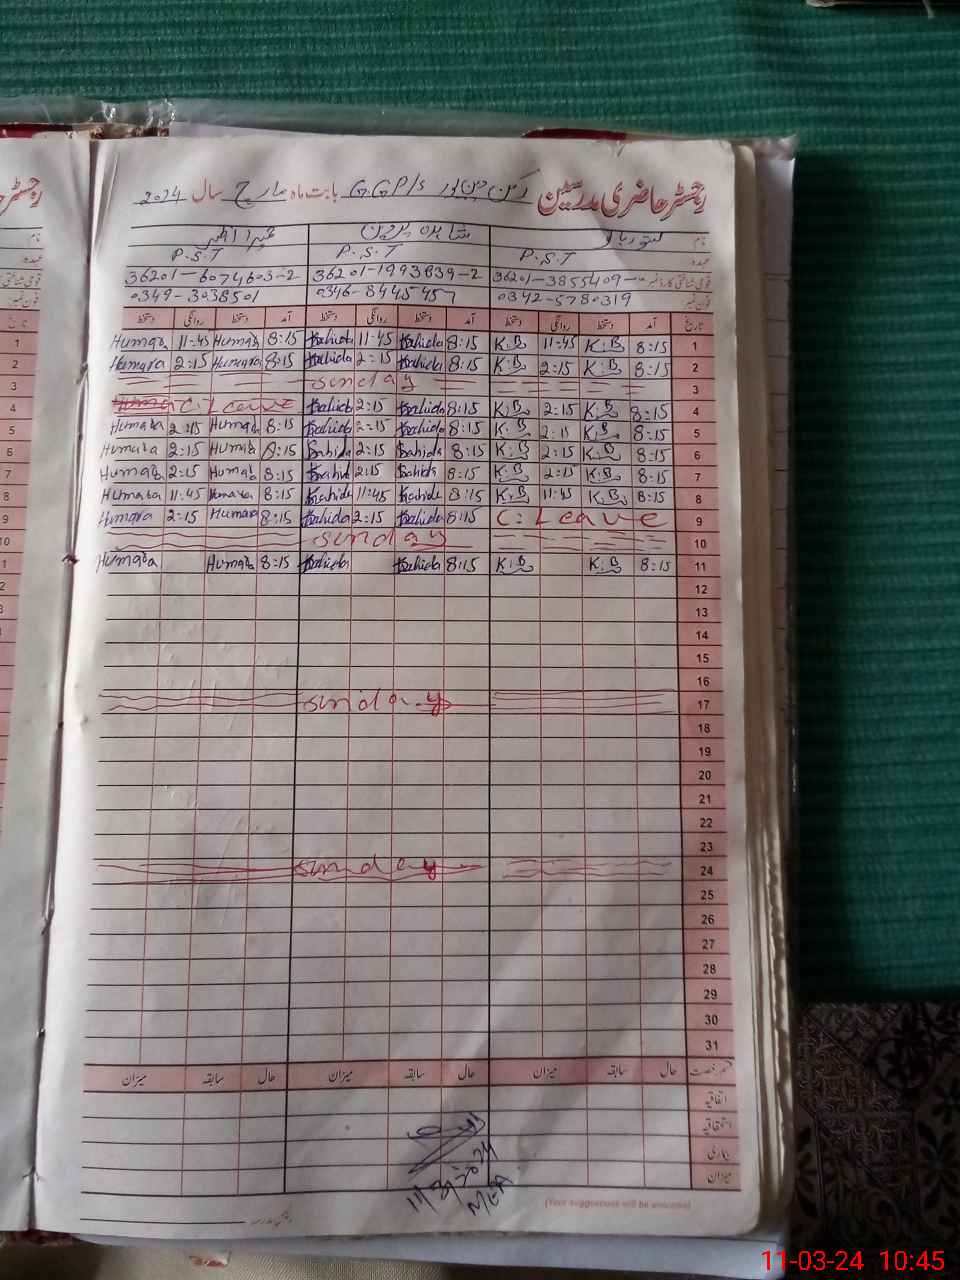 رجسٹر حاضری مدرسین GGP/S بابت ماہ مارچ سال 2024
نام
عہدہ P.S.T P.S.T P.S.T
قومی شناختی کارڈ نمبر 36201-3855409- 36201-1993839-2 36201-6074603-2
فون نمبر 0342-5780319 0346-8445457 0349-3038501
تاریخ آمد دستخط روانگی دستخط آمد دستخط روانگی دستخط آمد دستخط روانگی دستخط
1 8:15 K.B 11:45 K.B 8:15 Zahida 11:45 Zahida 8:15 Humara 11:45 Humara
2 8:15 K.B 2:15 K.B 8:15 Zahida 2:15 Zahida 8:15 Humara 2:15 Humara
3 Sunday
4 8:15 K.B 2:15 K.B 8:15 Zahida 2:15 Zahida C:Leave
5 8:15 K.B 2:15 K.B 8:15 Zahida 2:15 Zahida 8:15 Humara 2:15 Humara
6 8:15 K.B 2:15 K.B 8:15 Zahida 2:15 Zahida 8:15 Humara 2:15 Humara
7 8:15 K.B 2:15 K.B 8:15 Zahida 2:15 Zahida 8:15 Humara 2:15 Humara
8 8:15 K.B 11:45 K.B 8:15 Zahida 11:45 Zahida 8:15 Humara 11:45 Humara
9 C:Leave 8:15 Zahida 2:15 Zahida 8:15 Humara 2:15 Humara
10 Sunday
11 8:15 K.B K.B 8:15 Zahida Zahida 8:15 Humara Humara
12
13
14
15
16
17 Sunday
18
19
20
21
22
23
24 Sunday
25
26
27
28
29
30
31
قسم رخصت حال سابقہ میزان حال سابقہ میزان حال سابقہ میزان
اتفاقیہ
استحقاقیہ
بیماری
میزان
11/3/2024
MEA
(Your suggestions will be welcome)
11-03-24 10:45